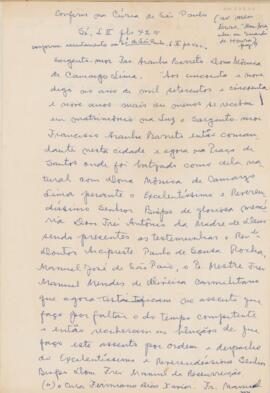 Conforme na Cúria de São Paulo
Sé, L II fls 42 v
Sargento-mor Fco. Aranha Barreto e Dona Mônica
de Camargo Lima. Aos cincoenta e nove
digo ao ano de mil setecentos e cincoenta
e nove anos mais ou menos se recebeu
em matrimônio na Luz o Sargento mor
Francisco Aranha Barreto então coman
dante nesta cidade e agora na Praça de
Santos onde foi batizado como dela na
tural com Dona Mônica de Camargo
Lima perante o Excelentíssimo e Reveren
díssimo Senhor Bispo de gloriosa memó
ria Dom Frei Antônio da Madre de Deus
sendo presentes as testemunhas o Rev.
Doutor Arcipreste Paulo de Souza Rocha,
Manuel José de São Paio, o Pe. Mestre Frei
Manuel Mendes de Oliveira Carmelitano
que agora testificaram no assento que
faço por faltar o do tempo competente
e então receberam as bênçãos de que
faço este assento por ordem e despacho
do Excelentíssimo e Reverendíssimo Senhor
Bispo Dom Frei Manuel da Ressurreição
(a) o Cura Fermiano Dias Xavier. Fr. Manuel